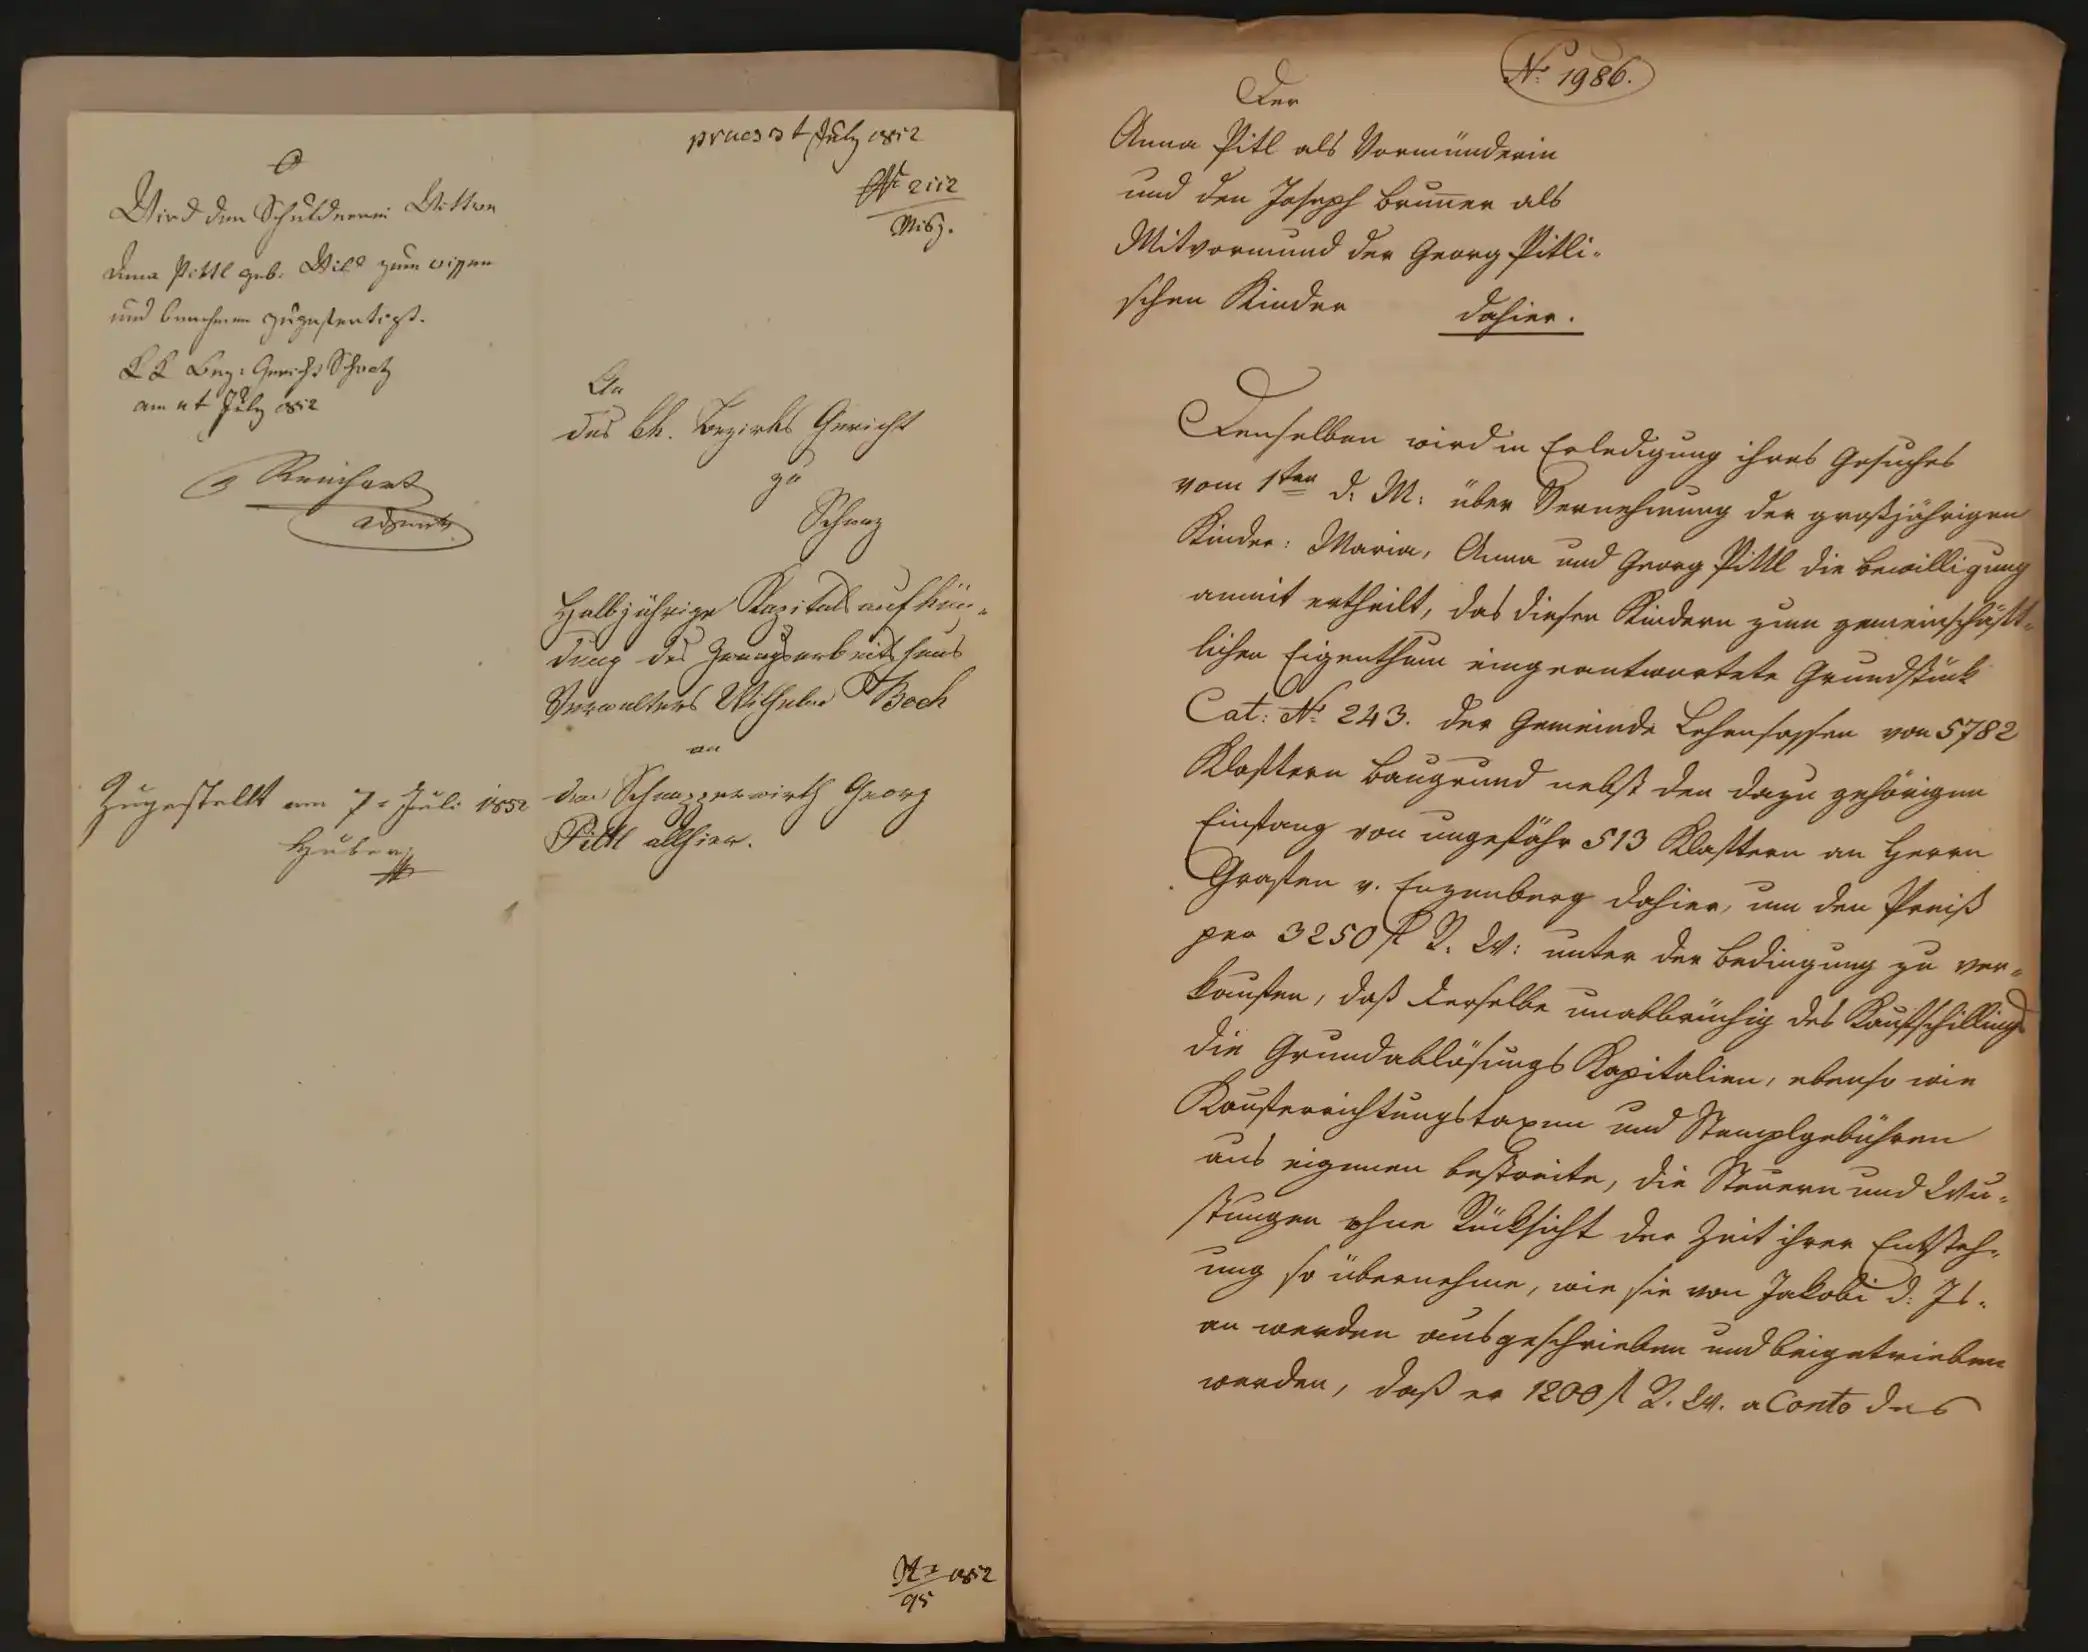 praes 3t July 1852
Nr 2112
Misz.
Wird der Schuldnerin Wittwe
Anna Pittl geb. Wild zum wissen
und benehmen zugefertigt.
KK Bez: Gericht Schwatz
am 4t July 1852
Reinhart
Adjunkt
An
das kk. Bezirks Gericht
zu
Schwaz
Halbjährige Kapitals aufkün-
dung des Zwangsarbeitshaus
Verwalters Wilhelm Boch
an
den Schnapperwirth Georg
Pittl allhier.
Zugestellt am 7. Juli 1852
Huber
1852
95
No 1986.
Der
Anna Pitl als Vormünderin
und den Joseph Brunner als
Mitvormund der Georg Pitli-
schen Kinder dahier.
Denselben wird in Erledigung ihres Gesuches
vom 1ten d. M: über Vernehmung der großjährigen
Kinder: Maria, Anna und Georg Pittl die Bewilligung
anmit ertheilt, das diesen Kindern zum gemeinschäft-
lichen Eigenthum eingeantwortete Grundstück
Cat: No 243. der Gemeinde Lehensassen von 5782
Klaftern Baugrund nebst den dazu gehörigen
Einfang von ungefähr 513 Klaftern an Herrn
Grafen v. Enzenberg dahier, um den Preiß
per 3250 fl R. W: unter der Bedingung zu ver-
kaufen, daß derselbe unabbrüchig des Kaufschillings
die Grundablösungs Kapitalien, ebenso wie
Kauferrichtungstaxen und Stempelgebühren
aus eigenen bestreite, die Steuern und Wu-
stungen ohne Rücksicht der Zeit ihrer Entsteh-
ung so übernehme, wie sie von Jakobi d: Js.
an werden ausgeschrieben und beigetrieben
werden, daß er 1200 fl R. W. a Conto des